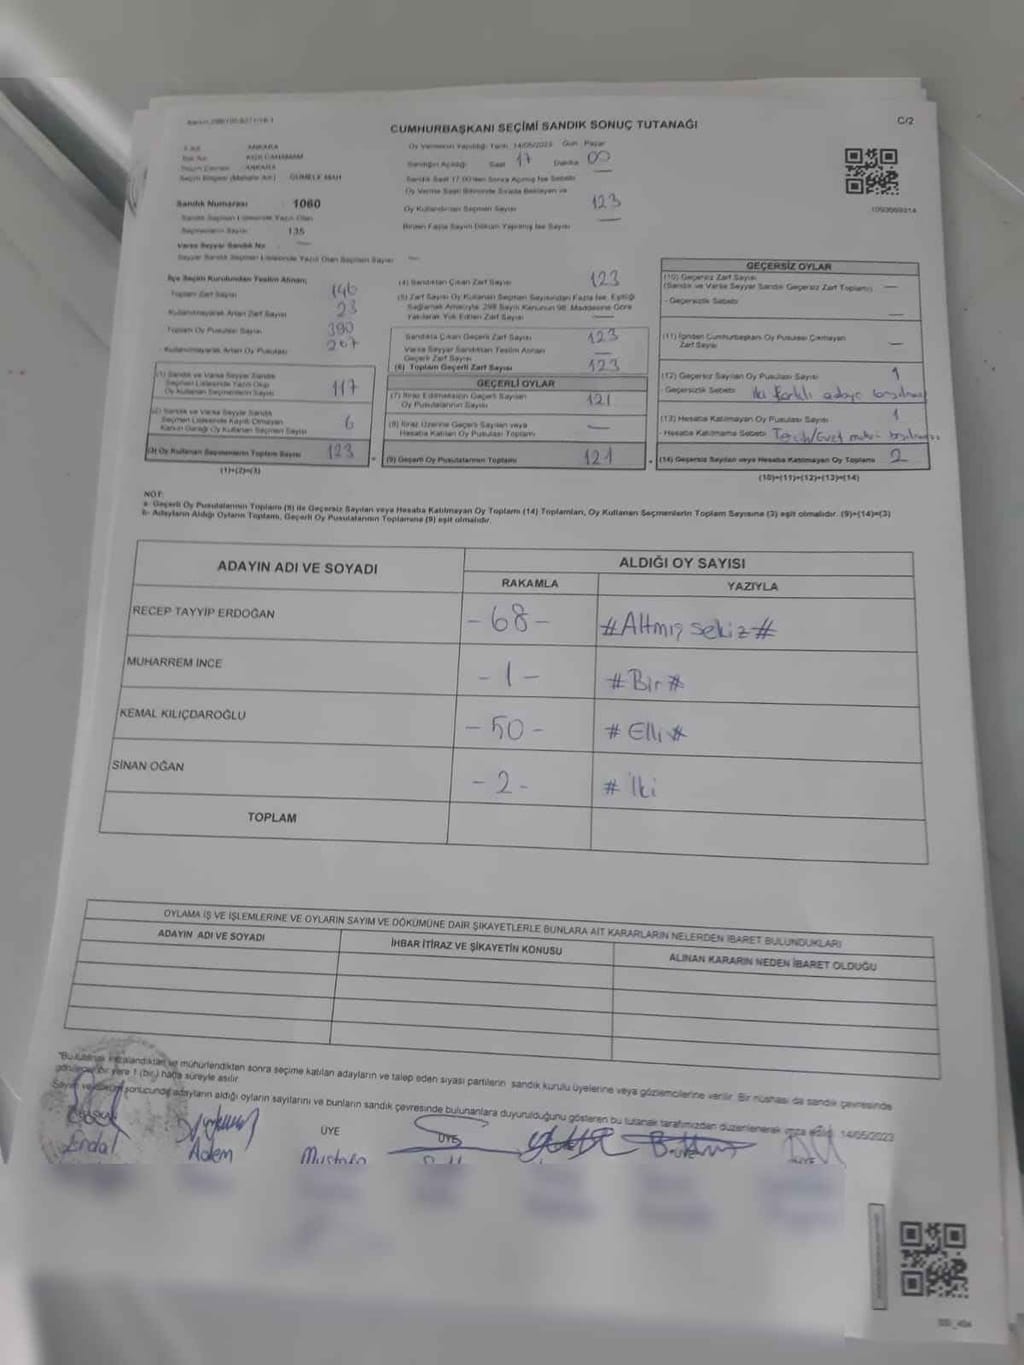 C/2
CUMHURBAŞKANI SEÇİMİ SANDIK SONUÇ TUTANAĞI
Oy Vermenin Yapıldığı Tarih 14/05/2023 Gün Pazar
ANKARA
KIZILCAHAMAM
ANKARA
Sandığın Açıldığı Saat 17 Dakika 00
Sandık Saat 17.00'den Sonra Açılmış İse Sebebi
Oy Verme Saati Bitiminde Sırada Bekleyen ve
Oy Kullandırılan Seçmen Sayısı 123
Birden Fazla Sayım Döküm Yapılmış İse Sayısı
Sandık Numarası 1060
Sandık Seçmen Listesinde Yazılı Olan
Seçmenlerin Sayısı 135
Varsa Seyyar Sandık No
Seyyar Sandık Seçmen Listesinde Yazılı Olan Seçmen Sayısı
İlçe Seçim Kurulundan Teslim Alınan;
Toplam Zarf Sayısı 146
Kullanılmayarak Artan Zarf Sayısı 23
Toplam Oy Pusulası Sayısı 390
Kullanılmayarak Artan Oy Pusulası 267
(1) Sandık ve Varsa Seyyar Sandık
Seçmen Listesinde Yazılı Olup
Oy Kullanan Seçmenlerin Sayısı 117
(2) Sandık ve Varsa Seyyar Sandık
Seçmen Listesinde Kayıtlı Olmayan
Kanun Gereği Oy Kullanan Seçmen Sayısı 6
(3) Oy Kullanan Seçmenlerin Toplam Sayısı 123
(1)+(2)=(3)
(4) Sandıktan Çıkan Zarf Sayısı 123
(5) Zarf Sayısı Oy Kullanan Seçmen Sayısından Fazla İse, Eşitliği
Sağlamak Amacıyla 298 Sayılı Kanunun 98. Maddesine Göre
Yakılarak Yok Edilen Zarf Sayısı
Sandıkta Çıkan Geçerli Zarf Sayısı 123
Varsa Seyyar Sandıktan Teslim Alınan
Geçerli Zarf Sayısı
(6) Toplam Geçerli Zarf Sayısı 123
GEÇERLİ OYLAR
(7) İtiraz Edilmeksizin Geçerli Sayılan
Oy Pusulalarının Sayısı 121
(8) İtiraz Üzerine Geçerli Sayılan veya
Hesaba Katılan Oy Pusulası Toplamı
(9) Geçerli Oy Pusulalarının Toplamı 121
GEÇERSİZ OYLAR
(10) Geçersiz Zarf Sayısı
(Sandık ve Varsa Seyyar Sandık Geçersiz Zarf Toplamı)
- Geçersizlik Sebebi
(11) İçinden Cumhurbaşkanı Oy Pusulası Çıkmayan
Zarf Sayısı
(12) Geçersiz Sayılan Oy Pusulası Sayısı 1
Geçersizlik Sebebi iki farklı adaya basılması
(13) Hesaba Katılmayan Oy Pusulası Sayısı 1
- Hesaba Katılmama Sebebi Tercih/Evet mührü basılmaması
(14) Geçersiz Sayılan veya Hesaba Katılmayan Oy Toplamı 2
(10)+(11)+(12)+(13)=(14)
NOT:
a- Geçerli Oy Pusulaları Toplamı (9) ile Geçersiz Sayılan veya Hesaba Katılmayan Oy Toplamı (14) Toplamları, Oy Kullanan Seçmenlerin Toplam Sayısına (3) eşit olmalıdır. (9)+(14)=(3)
b- Adayların Aldığı Oyların Toplamı, Geçerli Oy Pusulalarının Toplamına (9) eşit olmalıdır.
ADAYIN ADI VE SOYADI ALDIĞI OY SAYISI
RAKAMLA YAZIYLA
RECEP TAYYİP ERDOĞAN -68- #Altmış sekiz#
MUHARREM İNCE -1- #Bir#
KEMAL KILIÇDAROĞLU -50- #Elli#
SİNAN OĞAN -2- #İki
TOPLAM
OYLAMA İŞ VE İŞLEMLERİNE VE OYLARIN SAYIM VE DÖKÜMÜNE DAİR ŞİKAYETLERLE BUNLARA AİT KARARLARIN NELERDEN İBARET BULUNDUKLARI
ADAYIN ADI VE SOYADI İHBAR İTİRAZ VE ŞİKAYETİN KONUSU ALINAN KARARIN NEDEN İBARET OLDUĞU
"Bu tutanak imzalandıktan ve mühürlendikten sonra seçime katılan adayların ve talep eden siyasi partilerin sandık kurulu üyelerine veya gözlemcilerine verilir. Bir nüshası da sandık çevresinde
görülecek bir yere 1 (bir) hafta süreyle asılır.
Sayım ve döküm sonucunda adayların aldığı oyların sayılarını ve bunların sandık çevresinde bulunanlara duyurulduğunu gösteren bu tutanak tarafımızdan düzenlenerek imza edildi. 14/05/2023
BAŞKAN ÜYE ÜYE ÜYE ÜYE
Erdal Adem Mustafa